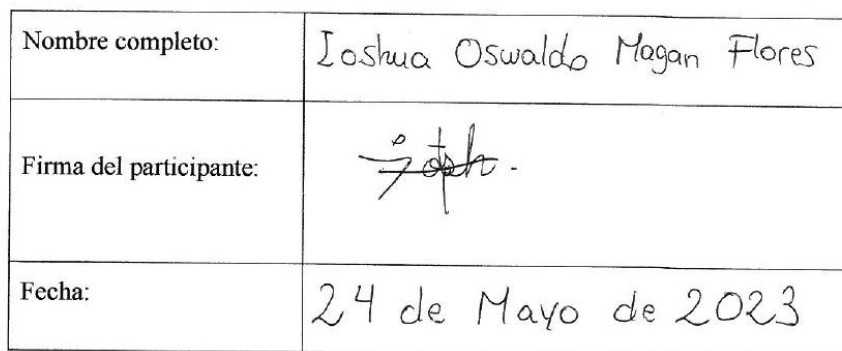 Nombre completo: Ioshua Oswaldo Magan Flores
Firma del participante:
Fecha: 24 de Mayo de 2023